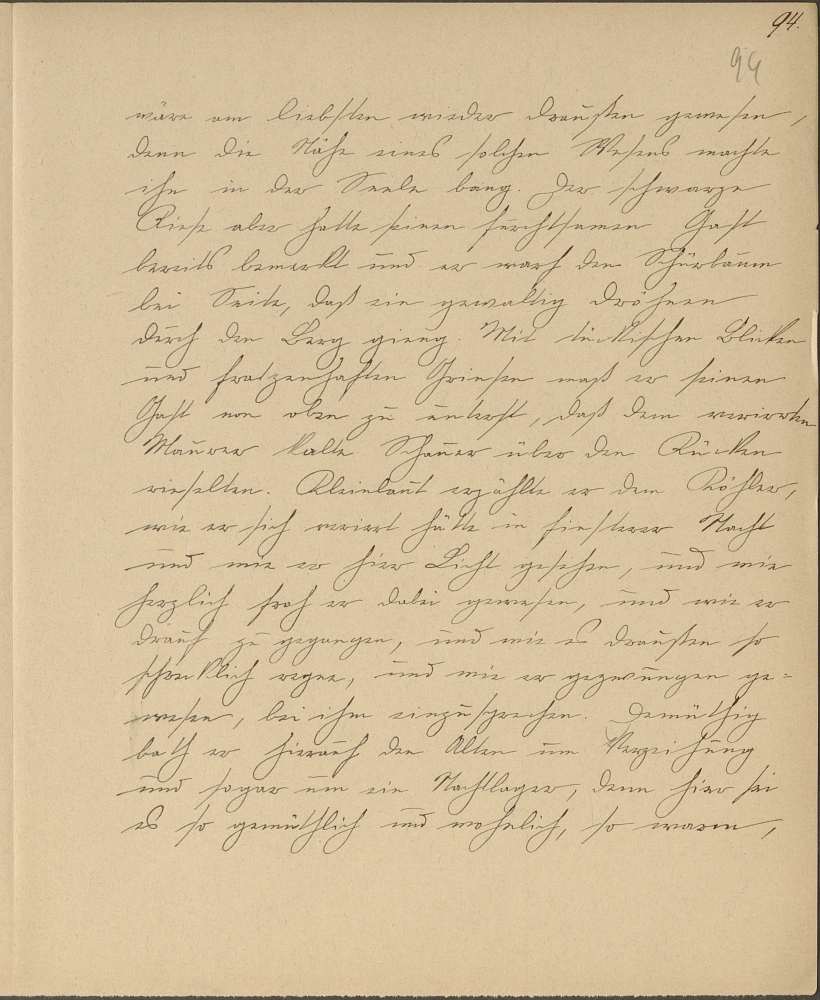 94.
94
wäre am liebsten wieder draußen gewesen,
denn die Nähe eines solchen Wesens machte
ihn in der Seele bang. Der schwarze
Riese aber hatte seinen furchtsamen Gast
bereits bemerkt und er warf den Schürbaum
bei Seite, daß ein gewaltig dröhnen
durch den Berg gieng. Mit tückischen Blicken
und fratzenhaften Grinsen maß er seinen
Gast von oben zu unterst, daß dem verirrten
Maurer kalte Schauer über den Rücken
rieselten. Kleinlaut erzählte er dem Köhler,
wie er sich verirrt hätte in finsterer Nacht
und wie er hier Licht gesehen, und wie
herzlich froh er dabei gewesen, und wie er
drauf zu gegangen, und wie es draußen so
schrecklich regne, und wie er gezwungen ge=
wesen, bei ihm einzusprechen. Demüthig
bath er hierauf den Alten um Verzeihung
und sogar um ein Nachtlager, denn hier sei
es so gemüthlich und wohnlich, so warm,